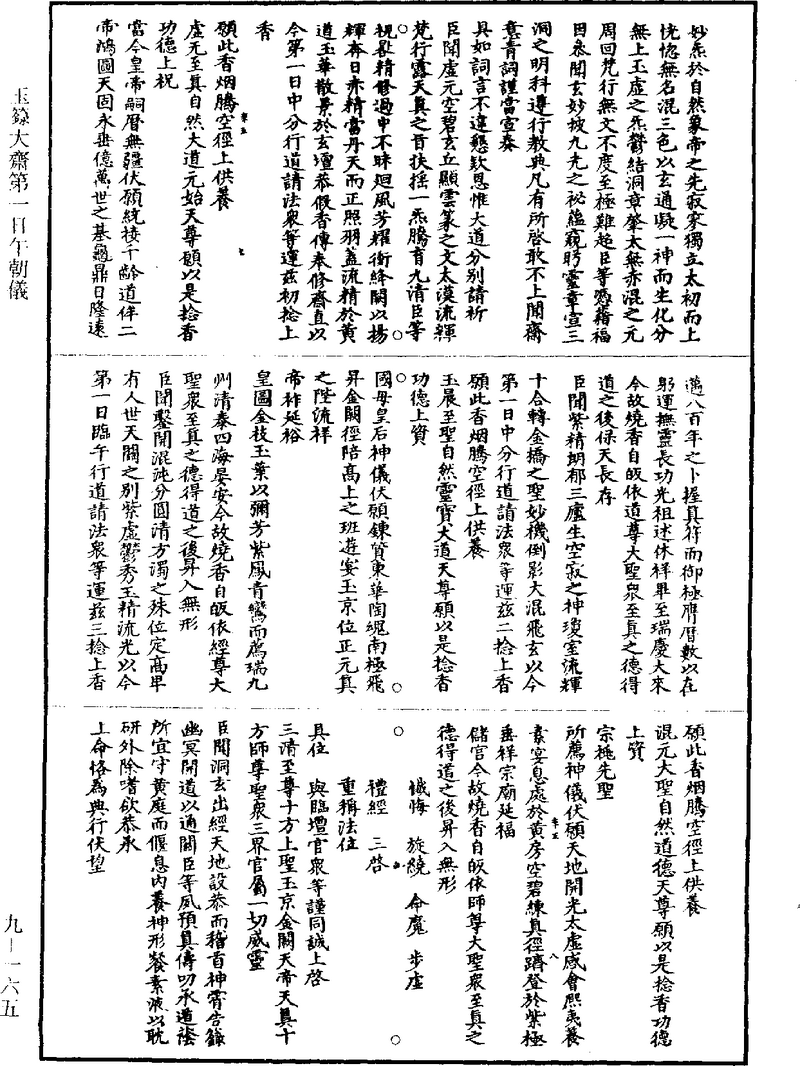 妙炁於自然象帝之先寂寥獨立太初而上
恍惚無名混三色以玄通凝一神而生化分
無上玉虛之炁鬱結洞章肇太無赤混之元
周回梵行無文不度至極難起臣等憑藉福
因參聞玄妙披九光之祕蘊窺眄靈章宣三
洞之明科遵行教典凡有所啓敢不上聞齋
意青詞謹當宣奏
具如詞言不違懇欵恩惟大道分別請祈
臣聞虛元空碧玄立顯雲篆之文太漠流輝
梵行露天真之首扶搖一炁騰育九清臣等
祝畢精修過中不昧廻風芳耀衝絳闕以揚
輝奔日赤精當丹天而正照羽蓋流精於黃
道玉華散景於玄壇恭假香傳奉修齋直以
今第一日中分行道請法衆等運茲初捻上
香
願此香烟騰空徑上供養
虛元至真自然大道元始天尊願以是捻香
功德上祝
當今皇帝嗣曆無疆伏願統接千齡道侔二
帝鴻圖天固永垂億萬世之基龜鼎日隆遠
邁八百年之卜握真符而御極膺曆數以在
躬運撫靈長功光祖述休祥畢至瑞慶大來
今故燒香自皈依道尊大聖衆至真之德得
道之後保天長存
臣聞紫精朗郁三廬生空寂之神瓊室流輝
十合轉金橋之聖妙機倒影大混飛玄以今
第一日中分行道請法衆等運茲二捻上香
願此香烟騰空徑上供養
玉晨至聖自然靈寶大道天尊願以是捻香
功德上資
國母皇后神儀伏願鍊質東華陶魂南極飛
昇金闕徑陪高上之班遊宴玉京位正元真
之陛流祥
帝祚延裕
皇圖金枝玉葉以彌芳紫鳳青鸞而薦瑞九
州清泰四海晏安今故燒香自皈依經尊大
聖衆至真之德得道之後昇入無形
臣聞鑿開混沌分圓清方濁之殊位定高卑
有人世天閽之別紫虛鬱秀玉精流光以今
第一日臨午行道請法衆等運茲三捻上香
願此香烟騰空徑上供養
混元大聖自然道德天尊願以是捻香功德
上資
宗祧先聖
所薦神儀伏願天地開光太虛感會熙夷養
素宴息處於黃房空碧練真徑躋登於紫極
垂祥宗廟延福
儲宮今故燒香自皈依師尊大聖衆至真之
德得道之後昇入無形
懺悔 旋繞 命魔 步虛
禮經 三啓
重稱法位
具位 與臨壇官衆等謹同誠上啓
三清至尊十方上聖玉京金闕天帝天真十
方師尊聖衆三界官屬一切威靈
臣聞洞玄出經天地設恭而稽首神霄告錄
幽冥開道以通關臣等夙預真傳叨承道蔭
所宜守黃庭而偃息內養神形餐素液以耽
研外除嗜欲恭承
上命恪為典行伏望
玉籙大齋第一日午朝儀
九—一六五